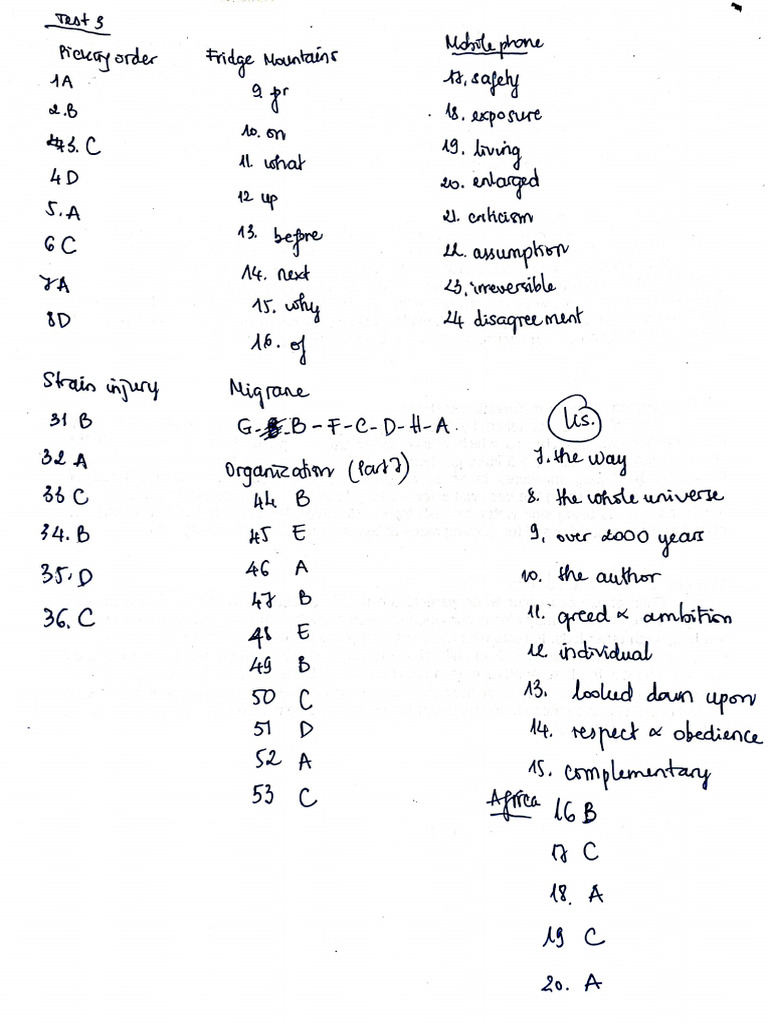 Test 3
Pickcty order
1A
2.B
3. C
4D
5. A
6 C
7A
8D
Fridge Mountains
9. pr
10. on
11. what
12 up
13. before
14. next
15. why
16. of
Mobile phone
17. safety
18. exposure
19. living
20. enlarged
21. criticism
22. assumption
23. irreversible
24 disagreement
Strain injury
31 B
32 A
33 C
34. B
35. D
36. C
Migrane
G - B - F - C - D - H - A.
Organization (Part 7)
44 B
45 E
46 A
47 B
48 E
49 B
50 C
51 D
52 A
53 C
Lis.
7. the way
8. the whole universe
9. over 2000 years
10. the author
11. greed & ambition
12. individual
13. looked down upon
14. respect & obedience
15. complementary
Africa
16 B
17 C
18. A
19 C
20. A